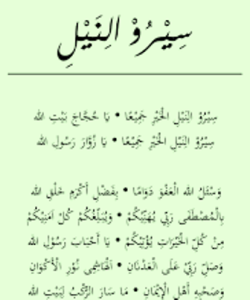 سِيْرُوْ الِنَيْلِ
سِيْرُوْ الِنَيْلِ الْخَيْرِ جَمِيْعًا • يَا حُجَّاجَ بَيْتِ الله
سِيْرُوْ الِنَيْلِ الْخَيْرِ جَمِيْعًا • يَا زُوَّارَ رَسُوْلِ الله
وَسْئَلُ الله الْعَفْوَ دَوَامًا • بِفَضْلِ أَكْرَمِ خَلْقِ الله
بِالْمُصْطَفَى رَبِّيْ يُهَنِّيْكُمْ • وَيُبَلِّغُكُمْ كُلَّ أَمَنِيْكُمْ
مِنْ كُلِّ الْخَيْرَاتِ يُؤْتِيْكُمْ • يَا أَحْبَابَ رَسُوْلِ الله
وَصَلِّ رَبِّيْ عَلَى الْعَدْنَانِ • الْهَاشِمِيْ نُوْرِ الْأَكْوَانِ
وَصَحْبِهِ أَهْلِ الْإِيْمَانِ • مَا سَارَ الرَّكْبُ لِبَيْتِ الله